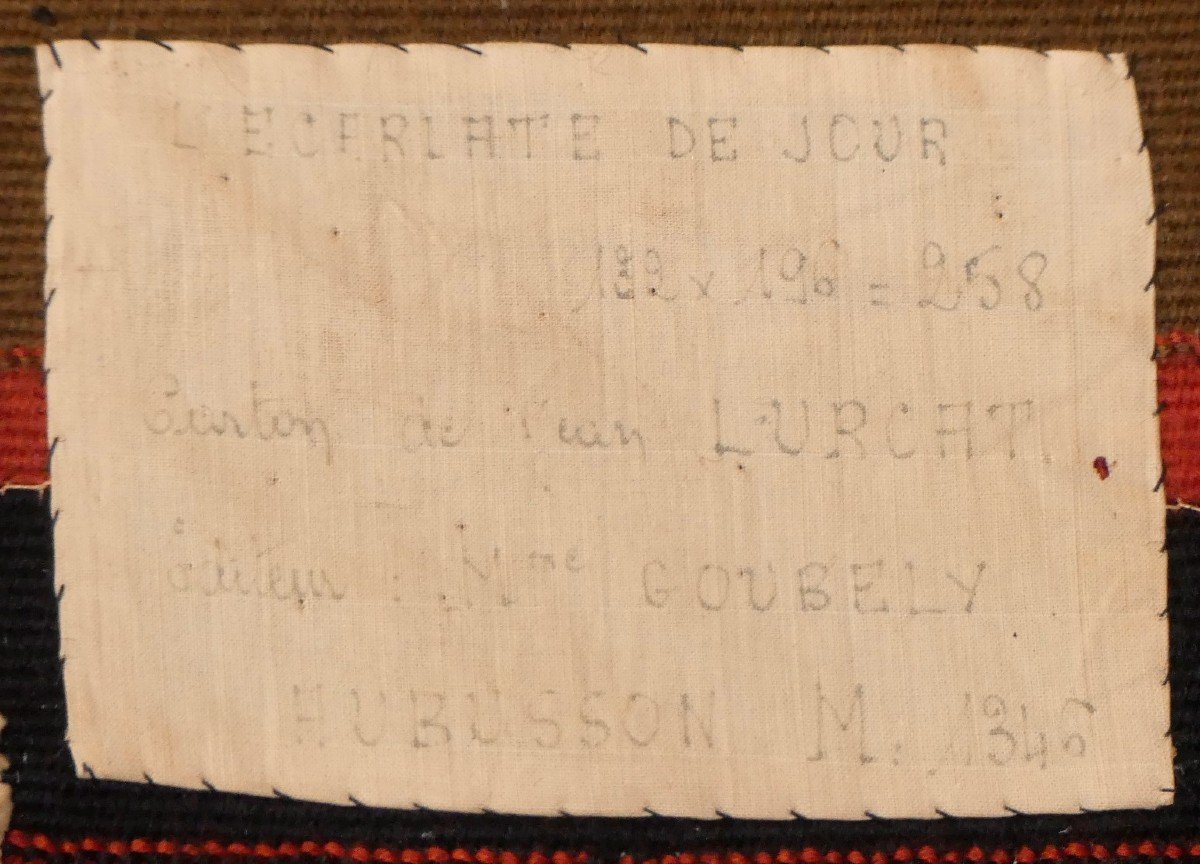 L'ECARLATE DE JOUR
132 x 196 = 258
Carton de Jean LURCAT
éditeur : Mme GOUBELY
AUBUSSON M. 1346